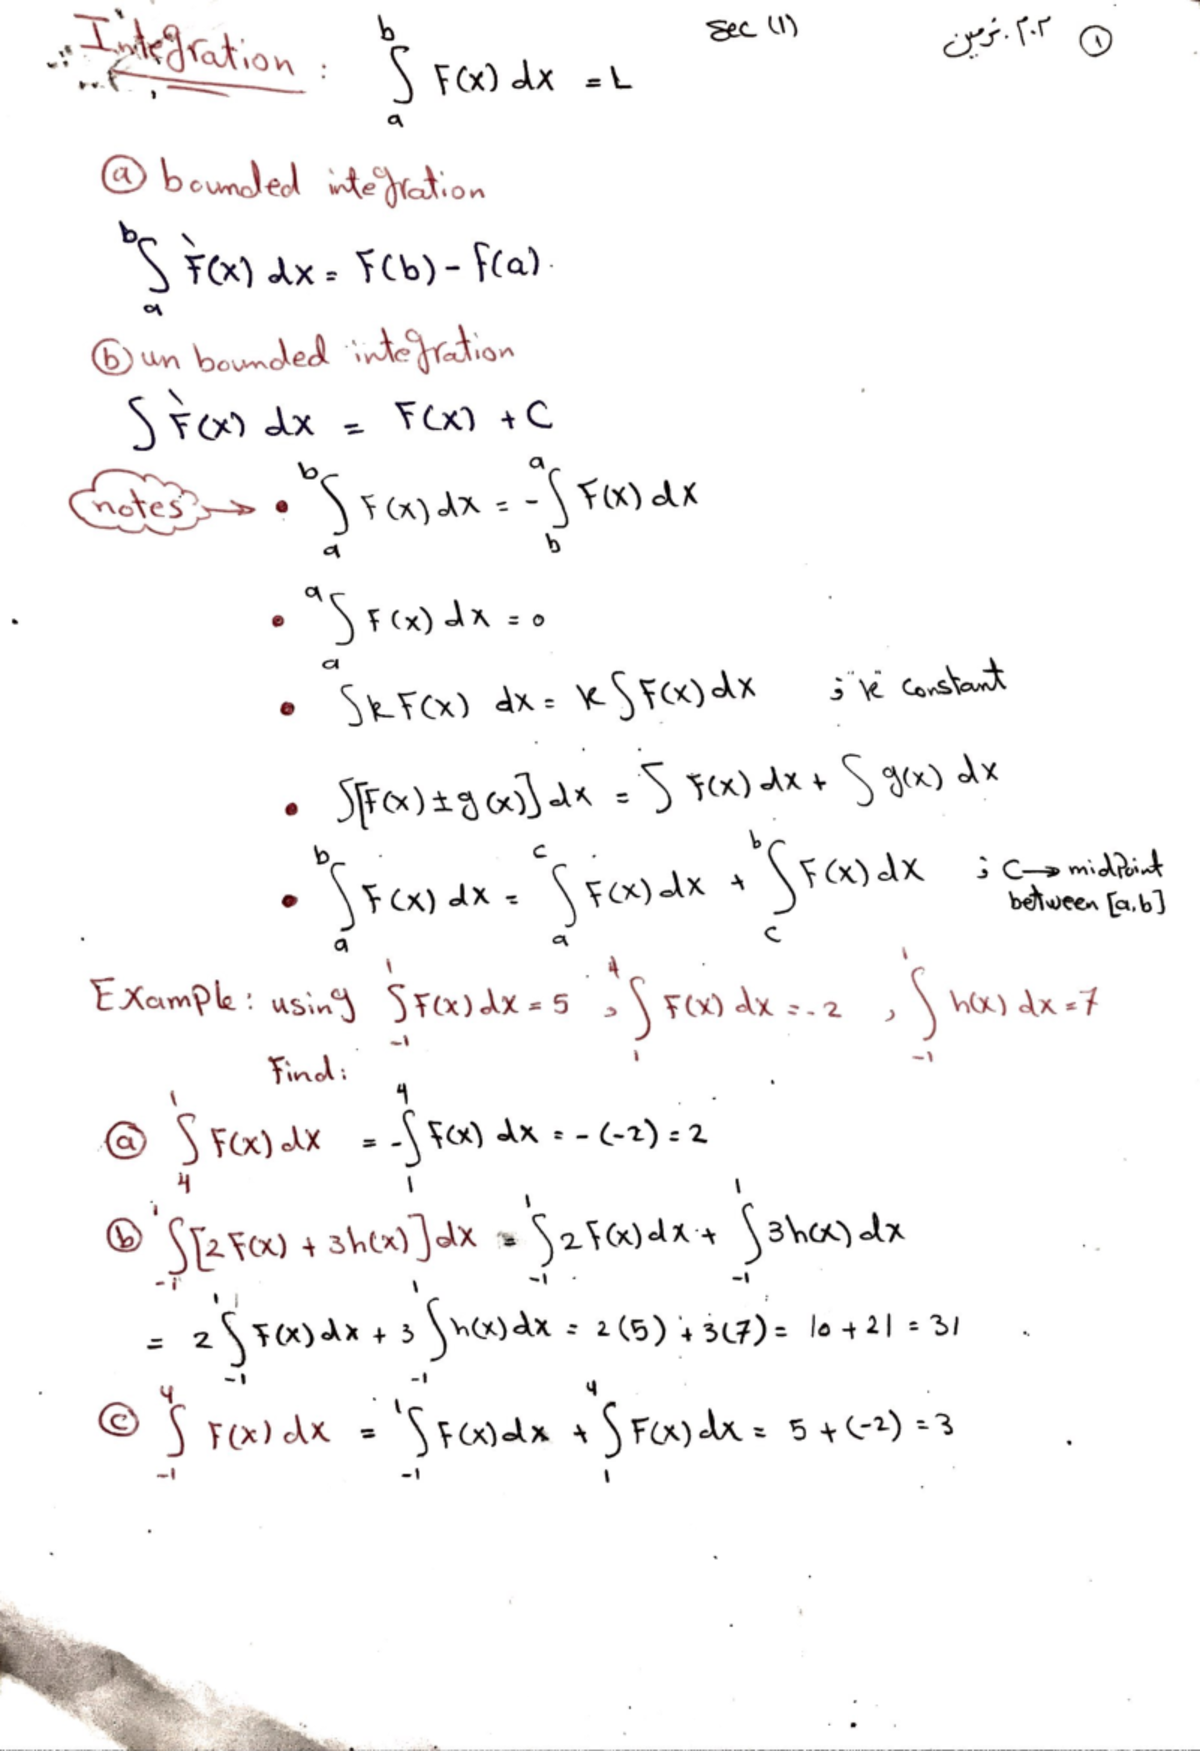 Integration : ∫_a^b F(x) dx = L
Sec (1)
م.م. نرمين ①
ⓐ bounded integration
∫_a^b F̀(x) dx = F(b) - F(a).
ⓑ un bounded integration
∫ F̀(x) dx = F(x) + C
notes → • ∫_a^b F(x) dx = -∫_b^a F(x) dx
• ∫_a^a F(x) dx = 0
• ∫kF(x) dx = k∫F(x) dx ; "k" constant
• ∫[F(x) ± g(x)] dx = ∫ F(x) dx + ∫ g(x) dx
• ∫_a^b F(x) dx = ∫_a^c F(x) dx + ∫_c^b F(x) dx ; C→ midPoint
between [a,b]
Example: using ∫_{-1}^1 F(x) dx = 5 , ∫_1^4 F(x) dx = -2 , ∫_{-1}^1 h(x) dx = 7
Find:
ⓐ ∫_4^1 F(x) dx = -∫_1^4 F(x) dx = -(-2) = 2
ⓑ ∫_{-1}^1 [2F(x) + 3h(x)] dx = ∫_{-1}^1 2F(x) dx + ∫_{-1}^1 3h(x) dx
= 2∫_{-1}^1 F(x) dx + 3∫_{-1}^1 h(x) dx = 2(5) + 3(7) = 10 + 21 = 31
ⓒ ∫_{-1}^4 F(x) dx = ∫_{-1}^1 F(x) dx + ∫_1^4 F(x) dx = 5 + (-2) = 3